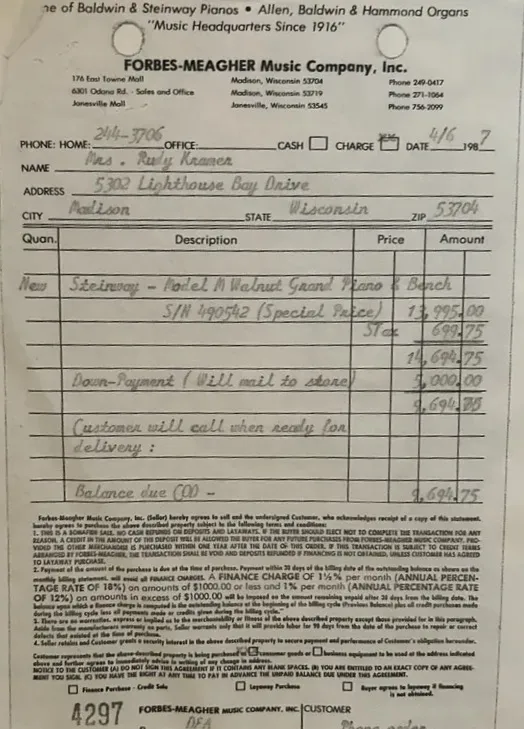 ne of Baldwin & Steinway Pianos • Allen, Baldwin & Hammond Organs
"Music Headquarters Since 1916"
FORBES-MEAGHER Music Company, Inc.
176 East Towne Mall Madison, Wisconsin 53704 Phone 249-0417
6301 Odana Rd. - Sales and Office Madison, Wisconsin 53719 Phone 271-1064
Janesville Mall Janesville, Wisconsin 53545 Phone 756-2099
PHONE: HOME: 244-3706 OFFICE: CASH CHARGE DATE 4/6 1987
NAME Mrs. Rudy Kramer
ADDRESS 5302 Lighthouse Bay Drive
CITY Madison STATE Wisconsin ZIP 53704
Quan. Description Price Amount
New Steinway - Model M Walnut Grand Piano & Bench
S/N 490542 (Special Price) 13,995.00
STax 699.75
14,694.75
Down-Payment (Will mail to store) 5,000.00
9,694.75
Customer will call when ready for
delivery:
Balance due COD - 9,694.75
Forbes-Meagher Music Company, Inc. (Seller) hereby agrees to sell and the undersigned Customer, who acknowledges receipt of a copy of this statement,
hereby agrees to purchase the above described property subject to the following terms and conditions:
1. THIS IS A BONAFIDE SALE. NO CASH REFUNDS ON DEPOSITS AND LAYAWAYS. IF THE BUYER SHOULD ELECT NOT TO COMPLETE THE TRANSACTION FOR ANY
REASON, A CREDIT IN THE AMOUNT OF THIS DEPOSIT WILL BE ALLOWED THE BUYER FOR ANY FUTURE PURCHASES FROM FORBES-MEAGHER MUSIC COMPANY, PRO-
VIDED THE OTHER MERCHANDISE IS PURCHASED WITHIN ONE YEAR AFTER THE DATE OF THIS ORDER. IF THIS TRANSACTION IS SUBJECT TO CREDIT TERMS
ARRANGED BY FORBES-MEAGHER, THE TRANSACTION SHALL BE VOID AND DEPOSITS REFUNDED IF FINANCING IS NOT OBTAINED, UNLESS CUSTOMER HAS AGREED
TO LAYAWAY PURCHASE.
2. Payment of the amount of the purchase is due at the time of purchase. Payment within 30 days of the billing date of the outstanding balance as shown on the
monthly billing statement, will avoid all FINANCE CHARGES. A FINANCE CHARGE OF 1½% per month (ANNUAL PERCEN-
TAGE RATE OF 18%) on amounts of $1000.00 or less and 1% per month (ANNUAL PERCENTAGE RATE
OF 12%) on amounts in excess of $1000.00 will be imposed on the amount remaining unpaid after 30 days from the billing date. The
balance upon which a finance charge is computed is the outstanding balance at the beginning of the billing cycle (Previous Balance) plus all credit purchases made
during the billing cycle less all payments made or credits given during the billing cycle."
3. There are no warranties, express or implied as to the merchantability or fitness of the above described property except those provided for in this paragraph.
Aside from the manufacturers warranty on parts, Seller warrants only that it will provide labor for 90 days from the date of the purchase to repair or correct
defects that existed at the time of purchase.
4. Seller retains and Customer grants a security interest in the above described property to secure payment and performance of Customer's obligation hereunder.
Customer represents that the above-described property is being purchased as consumer goods or business equipment to be used at the address indicated
above and further agrees to immediately advise in writing of any change in address.
NOTICE TO THE CUSTOMER (A) DO NOT SIGN THIS AGREEMENT IF IT CONTAINS ANY BLANK SPACES. (B) YOU ARE ENTITLED TO AN EXACT COPY OF ANY AGREE-
MENT YOU SIGN. (C) YOU HAVE THE RIGHT AT ANY TIME TO PAY IN ADVANCE THE UNPAID BALANCE DUE UNDER THIS AGREEMENT.
Finance Purchase - Credit Sale Layaway Purchase Buyer agrees to layaway if financing
is not obtained.
4297 FORBES-MEAGHER MUSIC COMPANY, INC. CUSTOMER
Phone order